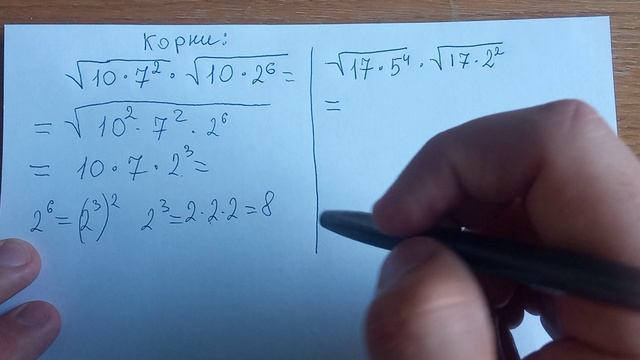 Корни:
√10·7² · √10·2⁶ =
= √10²·7²·2⁶
= 10·7·2³=
2⁶=(2³)² 2³=2·2·2=8
√17·5⁴ · √17·2²
=